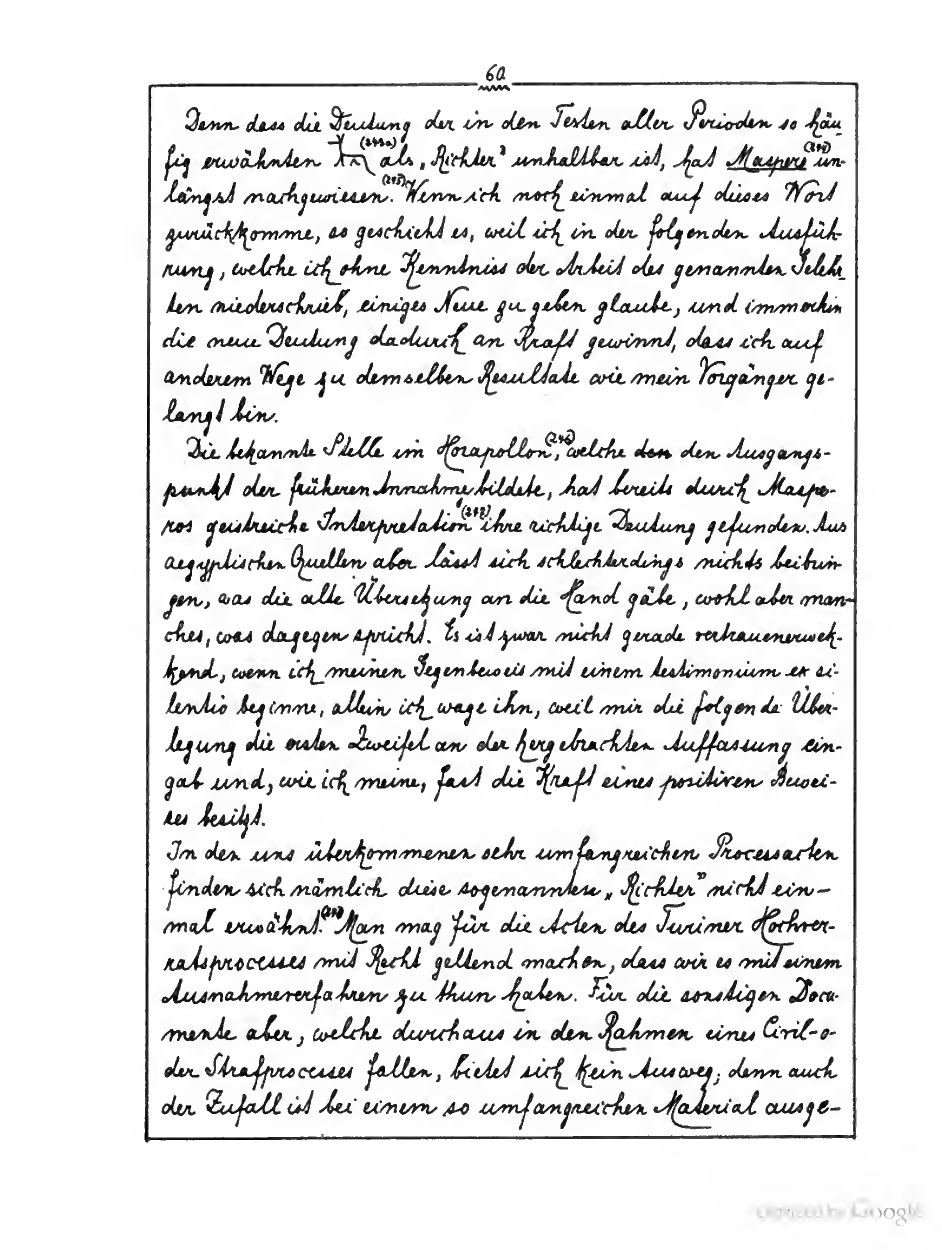 60
Denn dass die Deutung der in den Texten aller Perioden so häu
fig erwähnten (243a) als „Richter" unhaltbar ist, hat Maspero (244) un-
längst nachgewiesen. (245) Wenn ich noch einmal auf dieses Wort
zurückkomme, so geschieht es, weil ich in der folgenden Ausfüh-
rung, welche ich ohne Kenntniss der Arbeit des genannten Gelehr
ten niederschrieb, einiges Neue zu geben glaube, und immerhin
die neue Deutung dadurch an Kraft gewinnt, dass ich auf
anderem Wege zu demselben Resultate wie mein Vorgänger ge-
langt bin.
Die bekannte Stelle im Horapollon, (246) welche den den Ausgangs-
punkt der früheren Annahme bildete, hat bereits durch Maspe-
ros geistreiche Interpretation (247) ihre richtige Deutung gefunden. Aus
aegyptischen Quellen aber lässt sich schlechterdings nichts beibrin
gen, was die alte Übersetzung an die Hand gäbe, wohl aber man-
ches, was dagegen spricht. Es ist zwar nicht gerade vertrauenerwek-
kend, wenn ich meinen Gegenbeweis mit einem testimonium ex si-
lentio beginne, allein ich wage ihn, weil mir die folgende Über-
legung die ersten Zweifel an der hergebrachten Auffassung ein-
gab und, wie ich meine, fast die Kraft eines positiven Bewei-
ses besitzt.
In den uns überkommenen sehr umfangreichen Processacten
finden sich nämlich diese sogenannten „Richter" nicht ein-
mal erwähnt. Man mag für die Acten des Turiner Hochver-
ratsprocesses mit Recht geltend machen, dass wir es mit einem
Ausnahmeverfahren zu thun haben. Für die sonstigen Docu-
mente aber, welche durchaus in den Rahmen eines Civil-o-
der Strafprocesses fallen, bietet sich kein Ausweg; denn auch
der Zufall ist bei einem so umfangreichen Material ausge-
Digitized by Google